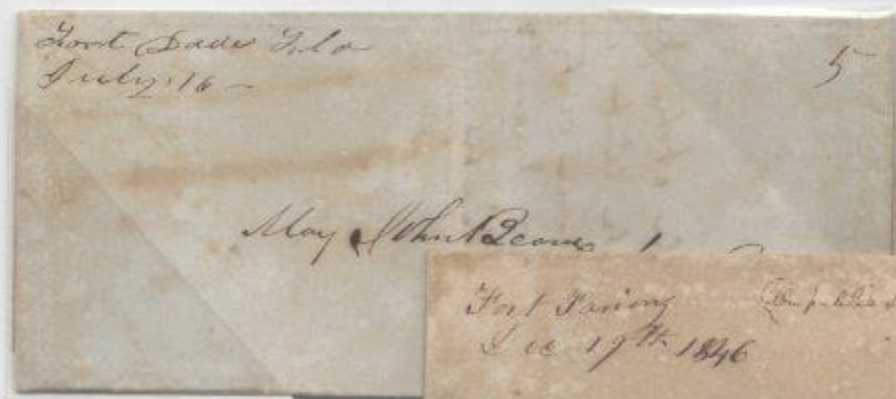 Fort Dade Flo
July 16 5
May John
Fort Faning
Dec 19th 1846